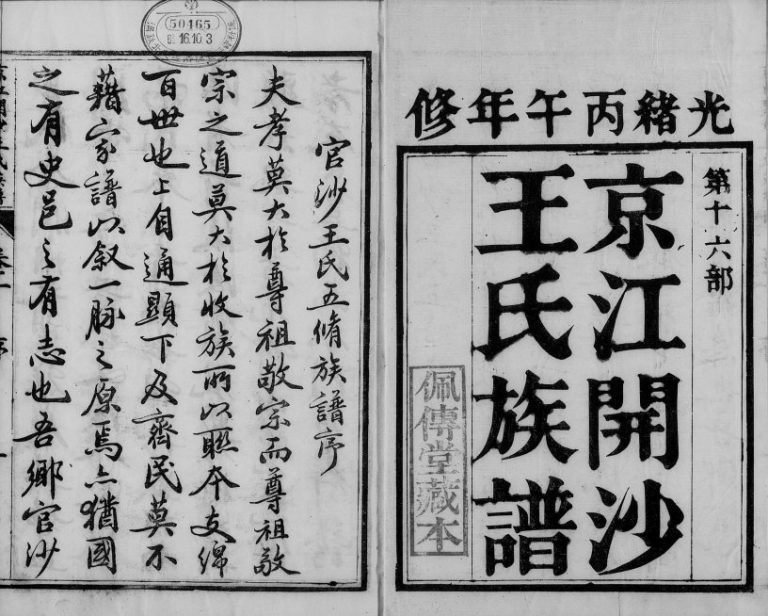 光緒丙午年修
第十六部
京江開沙
王氏族譜
佩傳堂藏本
50465
16.10.3
官沙王氏五脩族譜序
夫孝莫大於尊祖敬宗而尊祖敬
宗之道莫大於收族所以聯本支綿
百世也上自通顯下及齊民莫不
藉家譜以叙一脉之原焉亦猶國
之有史邑之有志也吾鄉官沙